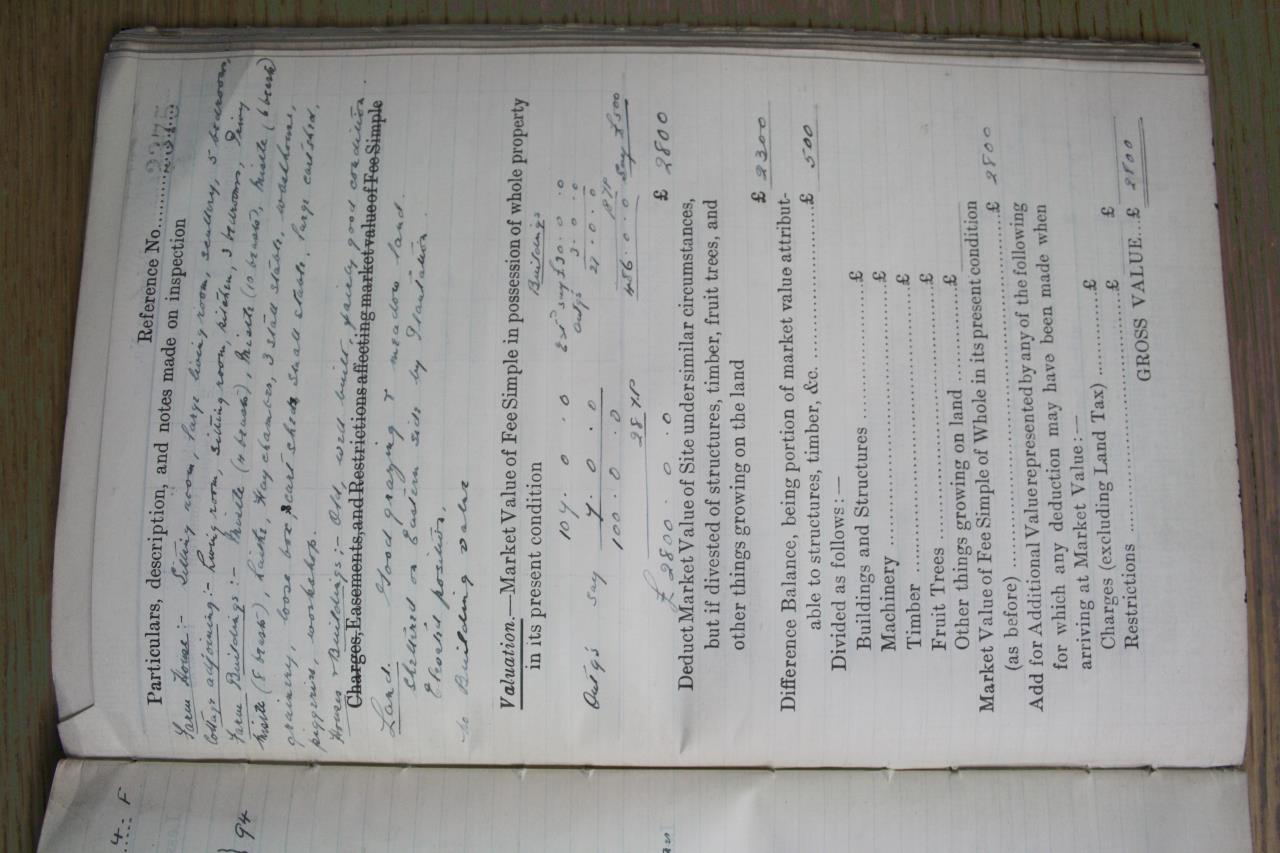 Reference No.
Particulars, description, and notes made on inspection
Farm House:- Sitting room, large living room, scullery, 5 bedrooms,
Cottage adjoining:- Living room, sitting room, kitchen, 3 bedrooms, Privy
Farm Buildings:- Mistle (4 beasts), Mistle (10 beasts), Mistle (6 beasts)
Mistle (8 beasts), Laithe, Hay chamber, 3 stall stable, washhouse,
granary, loose box, stall stable, large cartshed,
piggeries, workshop.
Houses & Buildings:- Old, well built, fairly good condition
Charges, Easements, and Restrictions affecting market value of Fee Simple
Land. Good grazing & meadow land.
Sheltered on Eastern side by Plantation.
Elevated position.
No Building value
Valuation.—Market Value of Fee Simple in possession of whole property
in its present condition
Buildings
107. 0. 0 Est say £30. 0. 0
Outgs say 7. 0. 0 Outgs 3. 0. 0
100. 0. 0 27. 0. 0
28 YP 18 YP
£2800. 0. 0 486. 0. 0 Say £500
£ 2800
Deduct Market Value of Site under similar circumstances,
but if divested of structures, timber, fruit trees, and
other things growing on the land
£ 2300
Difference Balance, being portion of market value attribut-
able to structures, timber, &c. £ 500
Divided as follows:—
Buildings and Structures £
Machinery £
Timber £
Fruit Trees £
Other things growing on land £
Market Value of Fee Simple of Whole in its present condition
(as before) £ 2800
Add for Additional Value represented by any of the following
for which any deduction may have been made when
arriving at Market Value:—
Charges (excluding Land Tax) £
Restrictions £ £
GROSS VALUE...£ 2800
4 F
94